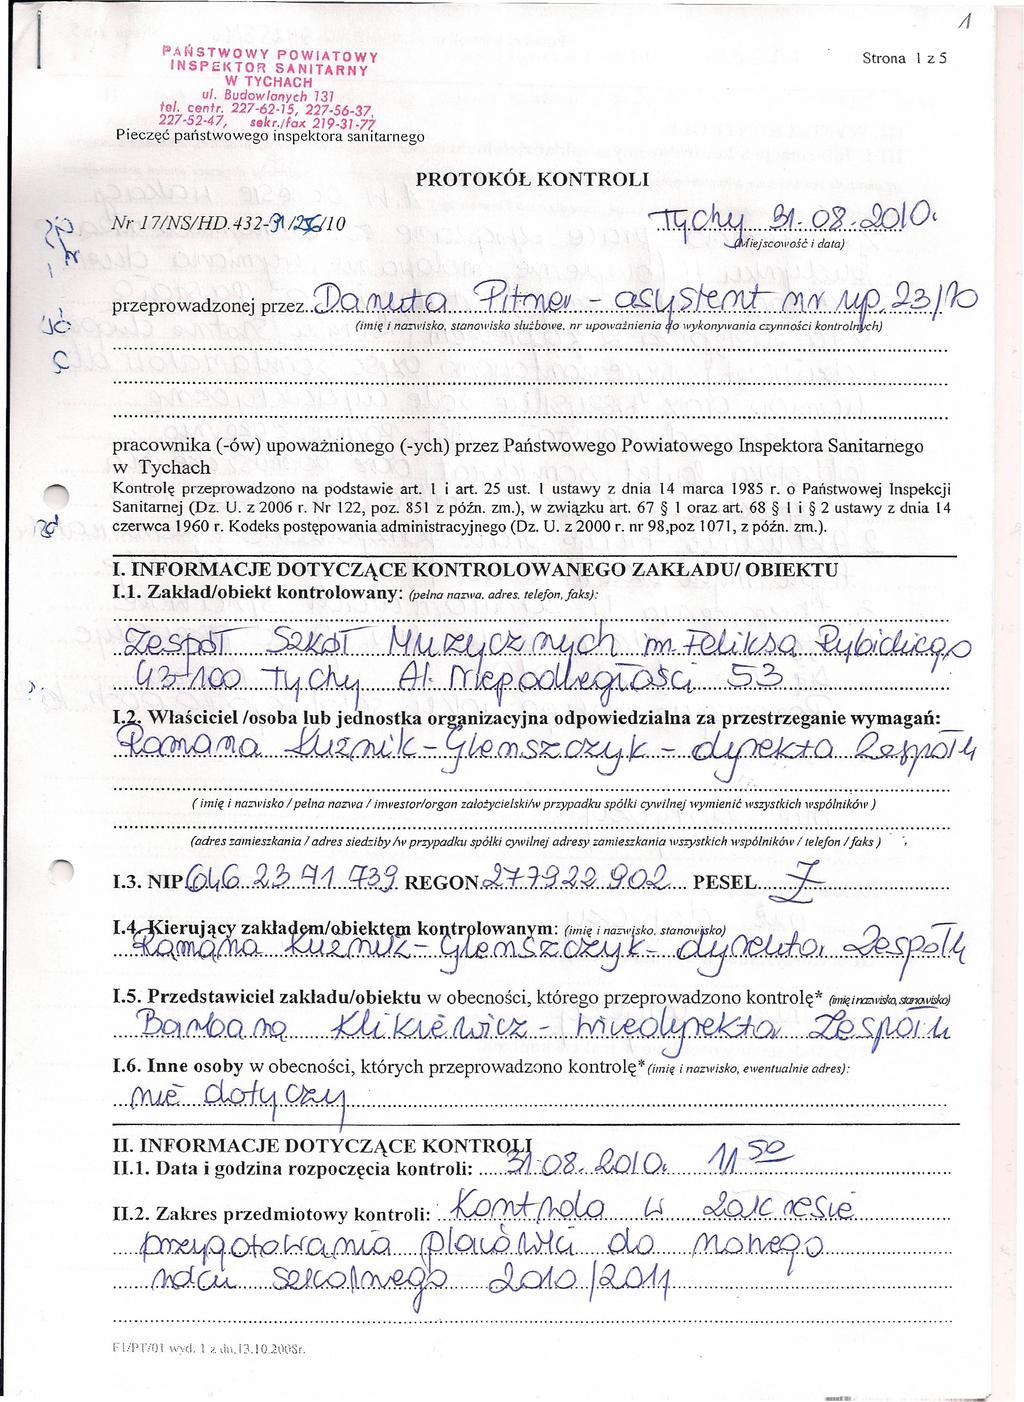 1
PAŃSTWOWY POWIATOWY
INSPEKTOR SANITARNY
W TYCHACH
ul. Budowlanych 131
tel. centr. 227-62-15, 227-56-37,
227-52-47, sekr./fax 219-31-77
Strona 1 z 5
Pieczęć państwowego inspektora sanitarnego
PROTOKÓŁ KONTROLI
Nr 17/NS/HD.432-91/256/10
Tychy 31.08.2010.
(Miejscowość i data)
przeprowadzonej przez..Danuta Pitner - asystent nr up. 23/10
(imię i nazwisko, stanowisko służbowe, nr upoważnienia do wykonywania czynności kontrolnych)
pracownika (-ów) upoważnionego (-ych) przez Państwowego Powiatowego Inspektora Sanitarnego
w Tychach
Kontrolę przeprowadzono na podstawie art. 1 i art. 25 ust. 1 ustawy z dnia 14 marca 1985 r. o Państwowej Inspekcji
Sanitarnej (Dz. U. z 2006 r. Nr 122, poz. 851 z późn. zm.), w związku art. 67 § 1 oraz art. 68 § 1 i § 2 ustawy z dnia 14
czerwca 1960 r. Kodeks postępowania administracyjnego (Dz. U. z 2000 r. nr 98,poz 1071, z późn. zm.).
I. INFORMACJE DOTYCZĄCE KONTROLOWANEGO ZAKŁADU/ OBIEKTU
I.1. Zakład/obiekt kontrolowany: (pełna nazwa, adres, telefon, faks):
Zespół Szkół Muzycznych im. Feliksa Rybickiego
43-100 Tychy Al. Niepodległości 53
I.2. Właściciel /osoba lub jednostka organizacyjna odpowiedzialna za przestrzeganie wymagań:
Romana Kuźnik-Glenszczyk - dyrektor Zespołu
( imię i nazwisko / pełna nazwa / inwestor/organ założycielski/w przypadku spółki cywilnej wymienić wszystkich wspólników )
(adres zamieszkania / adres siedziby /w przypadku spółki cywilnej adresy zamieszkania wszystkich wspólników / telefon / faks )
I.3. NIP 646 23 71 739 REGON 277922902 PESEL
I.4. Kierujący zakładem/obiektem kontrolowanym: (imię i nazwisko, stanowisko)
Romana Kuźnik-Glenszczyk - dyrektor Zespołu
I.5. Przedstawiciel zakładu/obiektu w obecności, którego przeprowadzono kontrolę* (imię i nazwisko, stanowisko)
Barbara Klikiewicz - wicedyrektor Zespołu
I.6. Inne osoby w obecności, których przeprowadzono kontrolę* (imię i nazwisko, ewentualnie adres):
nie dotyczy
II. INFORMACJE DOTYCZĄCE KONTROLI
II.1. Data i godzina rozpoczęcia kontroli: 31.08.2010. 11 50
II.2. Zakres przedmiotowy kontroli: Kontrola w zakresie
przygotowania placówki do nowego
roku szkolnego 2010/2011
F1/PT/01 wyd. 1 z dn.13.10.2008r.